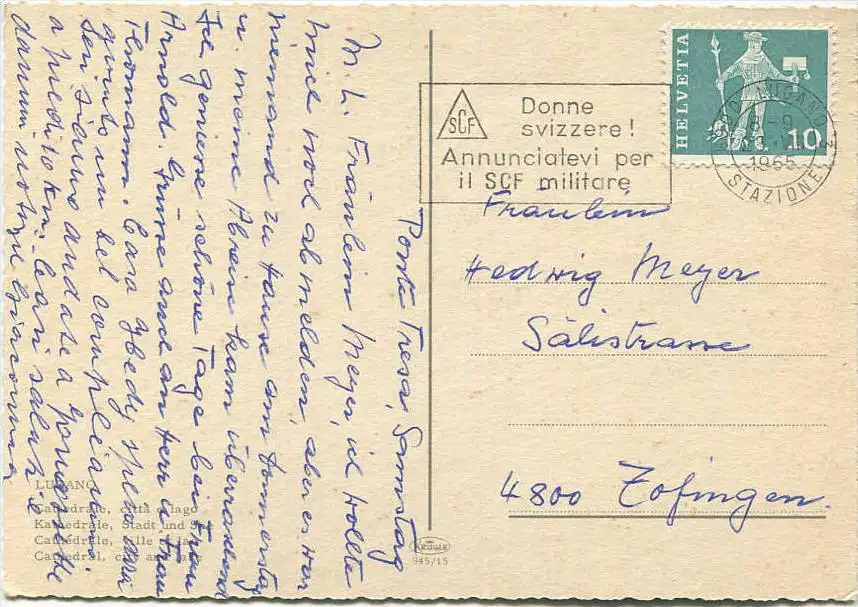 HELVETIA
10
LUGANO
1965
STAZIONE
SCF
Donne
svizzere!
Annunciatevi per
il SCF militare
Fräulein
Hedwig Meyer
Sälistrasse
4800 Zofingen.
Ponte Tresa, Samstag
M. L. Fräulein Meyer, ich wollte
mich noch abmelden, aber es war
niemand zu Hause am Donnerstag
u. meine Abreise kam überraschend
Ich geniesse schöne Tage bei Frau
Arnold. Grüsse auch an Herr u. Frau
Thomann. Cara Hedy spero assai
un bel compleanno.
Ieri siamo andate a
a piedi 10 km. Cari saluti e
dammi notizie Giacomina
LUGANO
Cattedrale, città e lago
Kathedrale, Stadt und S
Cathédrale, ville et lac
Cathedral, city and lake
KRÜGER
945/15